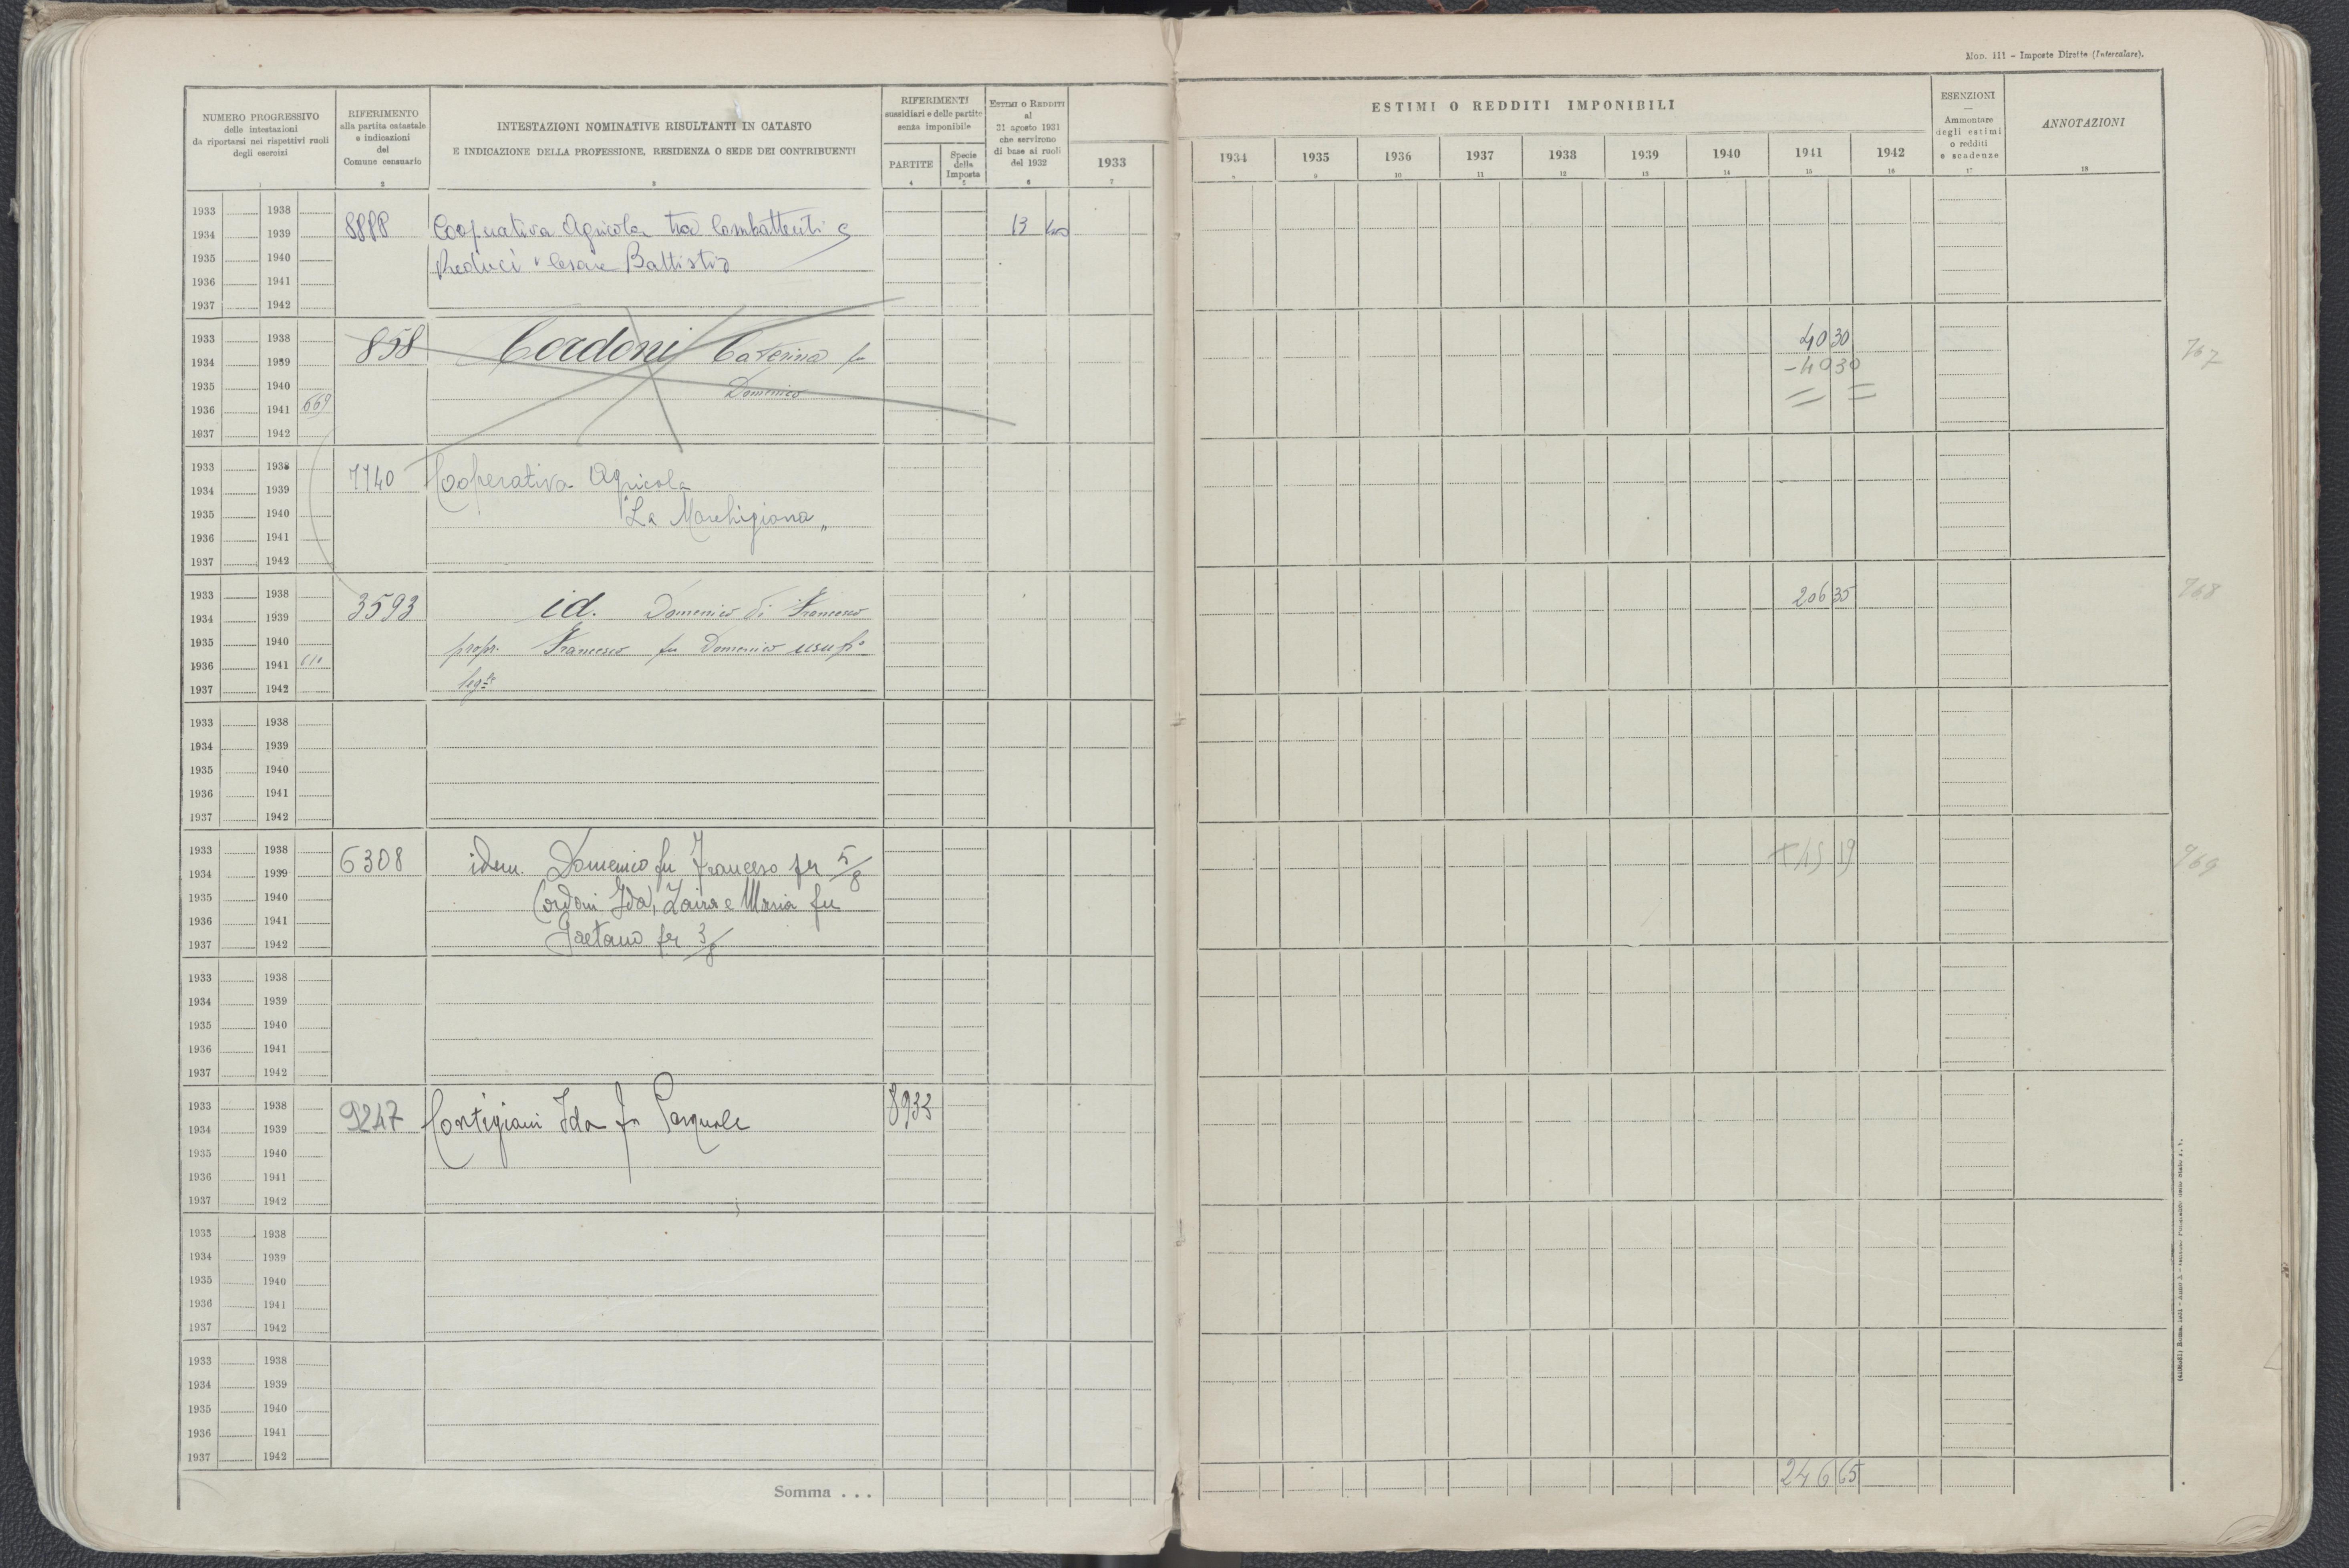 Mod. 111 - Imposte Dirette (Intercalare).
NUMERO PROGRESSIVO
delle intestazioni
da riportarsi nei rispettivi ruoli
degli esercizi
1
RIFERIMENTO
alla partita catastale
e indicazioni
del
Comune censuario
2
INTESTAZIONI NOMINATIVE RISULTANTI IN CATASTO
E INDICAZIONE DELLA PROFESSIONE, RESIDENZA O SEDE DEI CONTRIBUENTI
3
RIFERIMENTI
sussidiari e delle partite
senza imponibile
PARTITE
4
Specie
della
Imposta
5
ESTIMI O REDDITI
al
31 agosto 1931
che servirono
di base ai ruoli
del 1932
6
1933
7
ESTIMI O REDDITI IMPONIBILI
1934 1935 1936 1937 1938 1939 1940 1941 1942
8 9 10 11 12 13 14 15 16
ESENZIONI
—
Ammontare
degli estimi
o redditi
e scadenze
17
ANNOTAZIONI
18
1933 1938
1934 1939 8888 Cooperativa Agricola tra Combattenti e 13
1935 1940 Reduci "Cesare Battisti"
1936 1941
1937 1942
1933 1938 858 Cordoni Caterina fu 40 30 767
1934 1939 -40 30
1935 1940 Domenico
1936 1941 669
1937 1942
1933 1938 7740 Cooperativa Agricola
1934 1939
1935 1940 "La Marchigiana"
1936 1941
1937 1942
1933 1938 3593 id. Domenico di Francesco 206 35 768
1934 1939
1935 1940 propr. Francesco fu Domenico usufr.
1936 1941
1937 1942 leg.le
1933 1938
1934 1939
1935 1940
1936 1941
1937 1942
1933 1938 6308 idem. Domenico fu Francesco per 5/8 769
1934 1939
1935 1940 Cordoni Ida, Zaira e Maria fu
1936 1941
1937 1942 Gaetano per 3/8
1933 1938
1934 1939
1935 1940
1936 1941
1937 1942
1933 1938 9247 Cortigiani Ida fu Pasquale 8933
1934 1939
1935 1940
1936 1941
1937 1942
1933 1938
1934 1939
1935 1940
1936 1941
1937 1942
1933 1938
1934 1939
1935 1940
1936 1941
1937 1942
Somma . . . 246 65